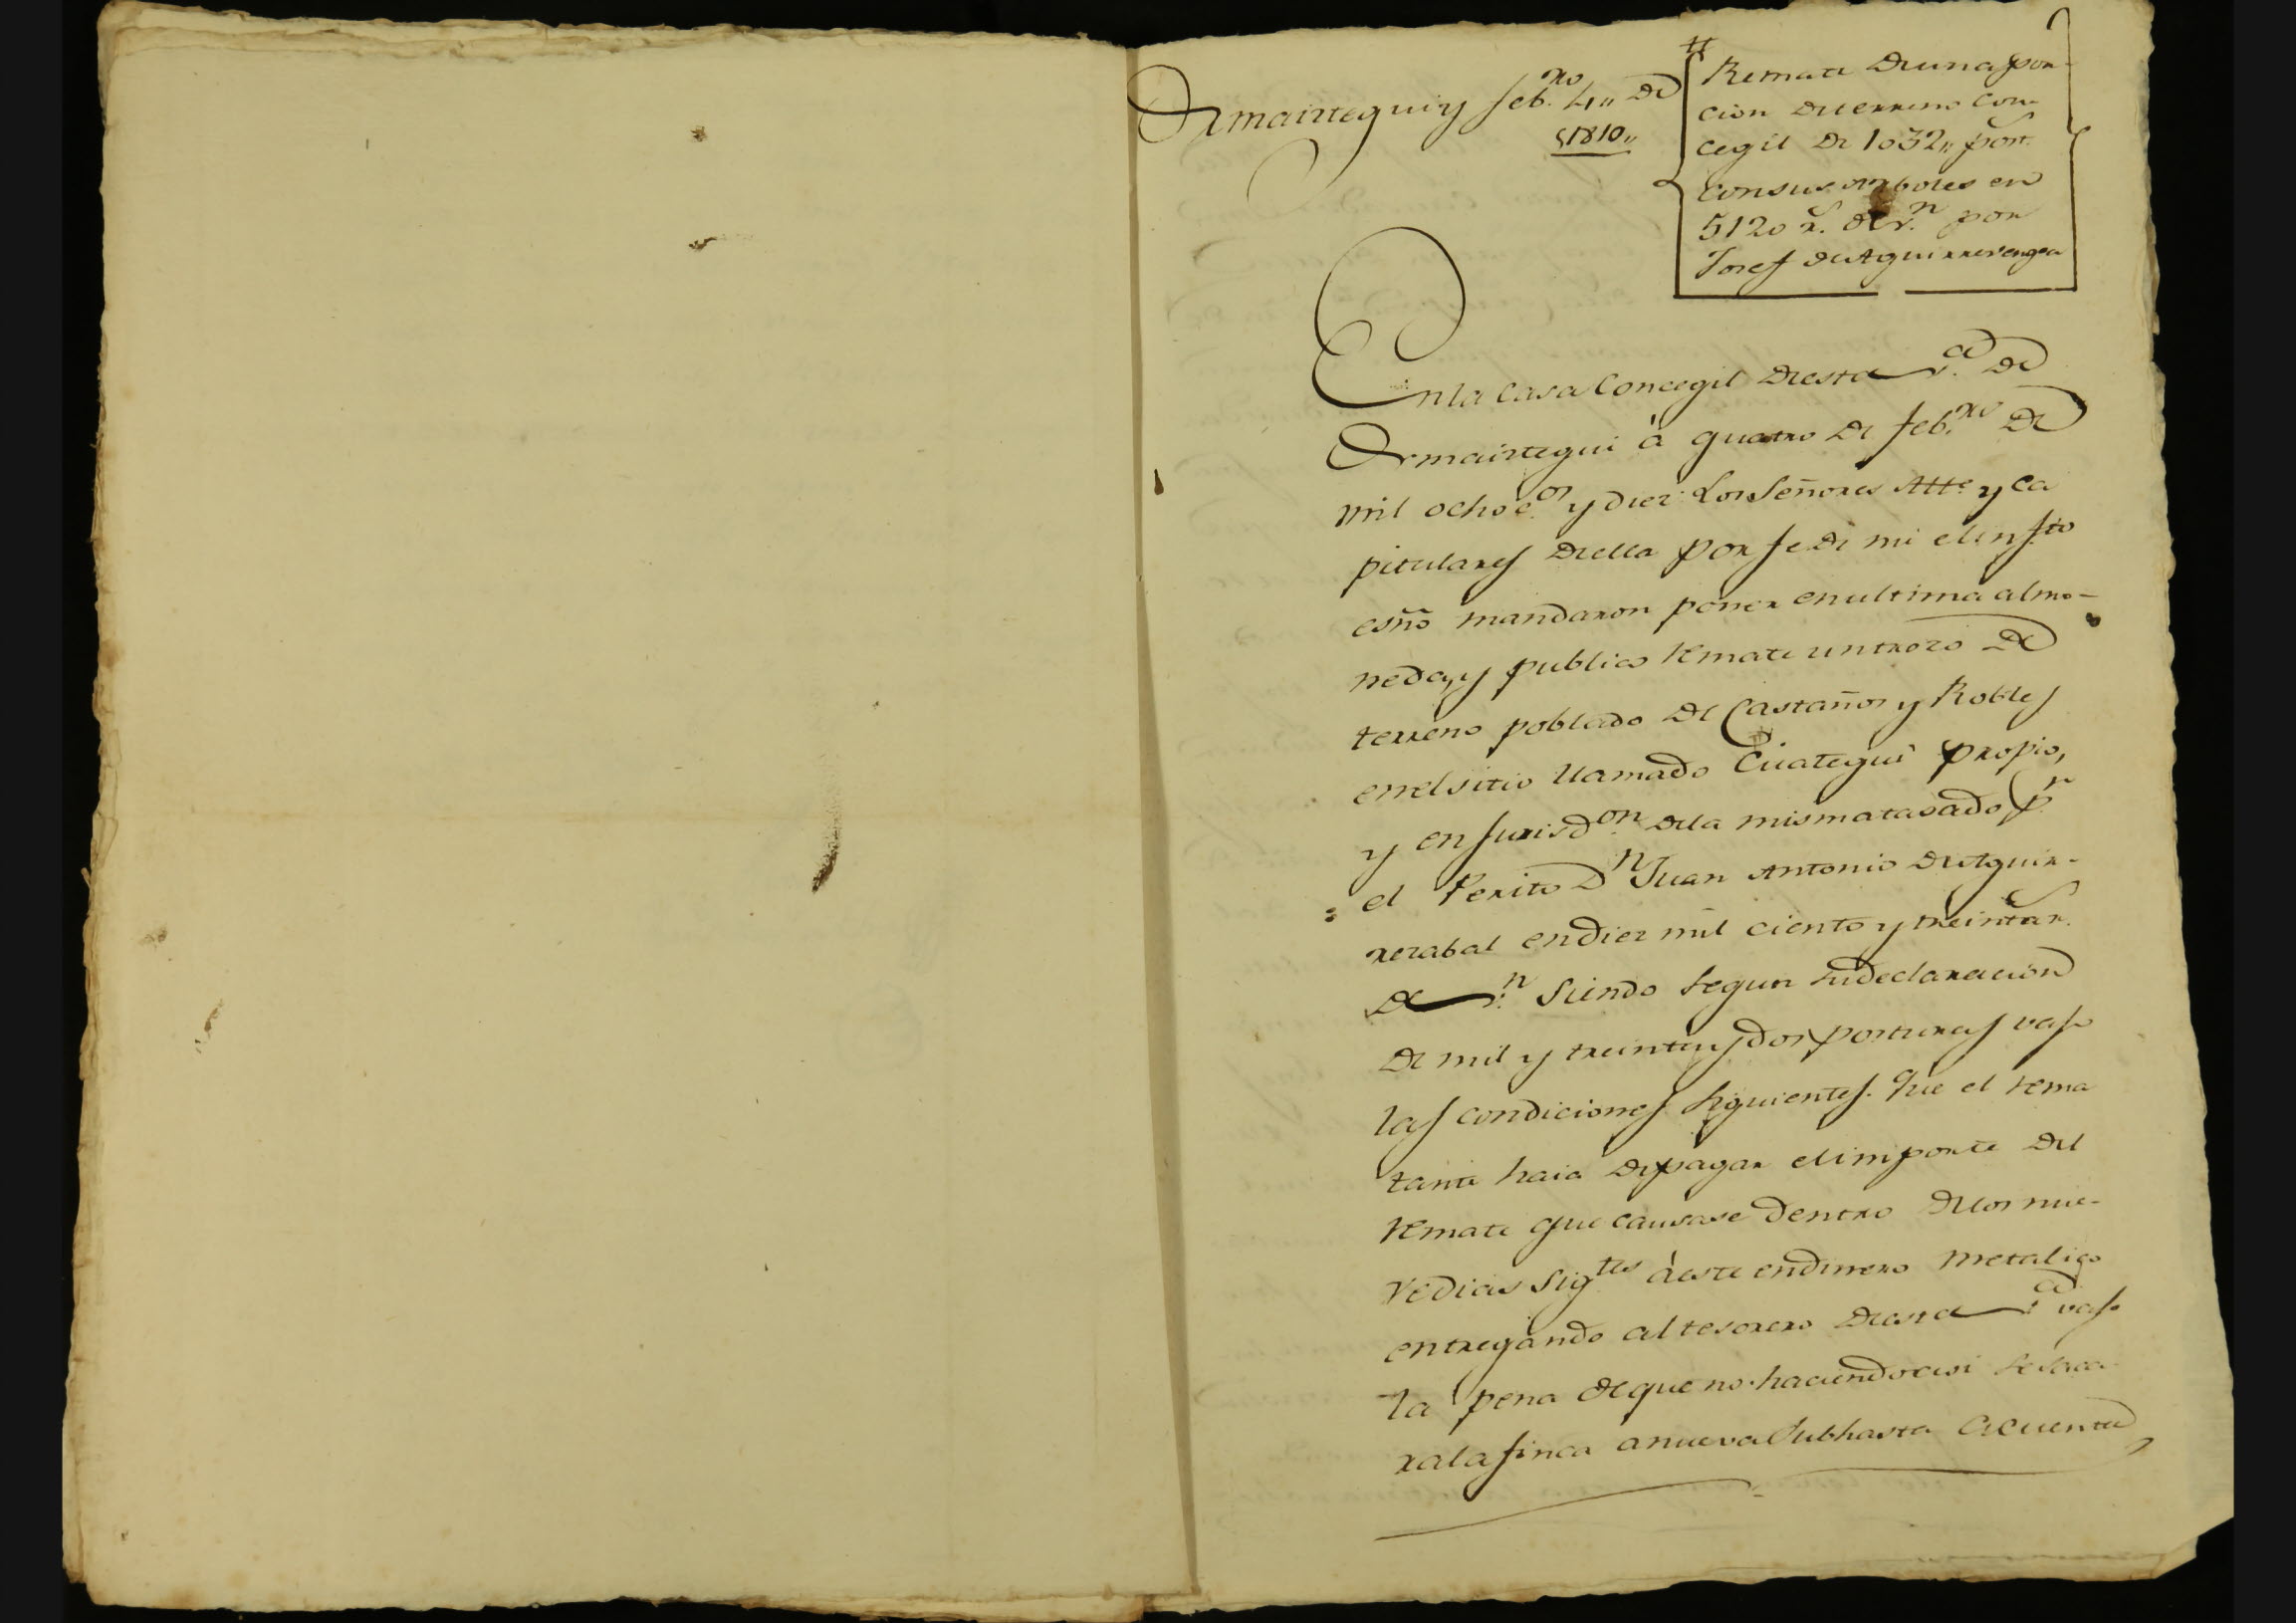 Ormaiztegui y feb.ro 4,, de
1810,,
Remate de una por-
cion de terreno con-
cegil de 1032,, post.s
con sus arboles en
5120 r.s de v.n por
Josef de Aguirrevengoa
En la Casa Concegil de esta v.a de
Ormaiztegui à quatro de feb.ro de
mil ochoc.os y diez: Los Señores Alle y Ca
pitulares de ella por fe de mi el infto
esño mandaron poner en ultima almo-
neda, y publico remate un trozo de
terreno poblado de Castaños y Robles
en el sitio llamado propio,
y en Jurisd.on de la misma tasado p.r
el Perito D.n Juan Antonio de Aguir-
rezabal en diez mil ciento y treinta r.s
de v.n Siendo segun su declaracion
de mil y treinta y dos posturas vajo
las condiciones siguientes. Que el rema
tante haia de pagar el importe del
remate que causase dentro de los nue-
ve dias sig.tes à este en dinero metalico
entregando al tesorero de esta v.a vajo
la pena de que no haciendo asi se saca
ra la finca a nueva Subhasta a cuenta